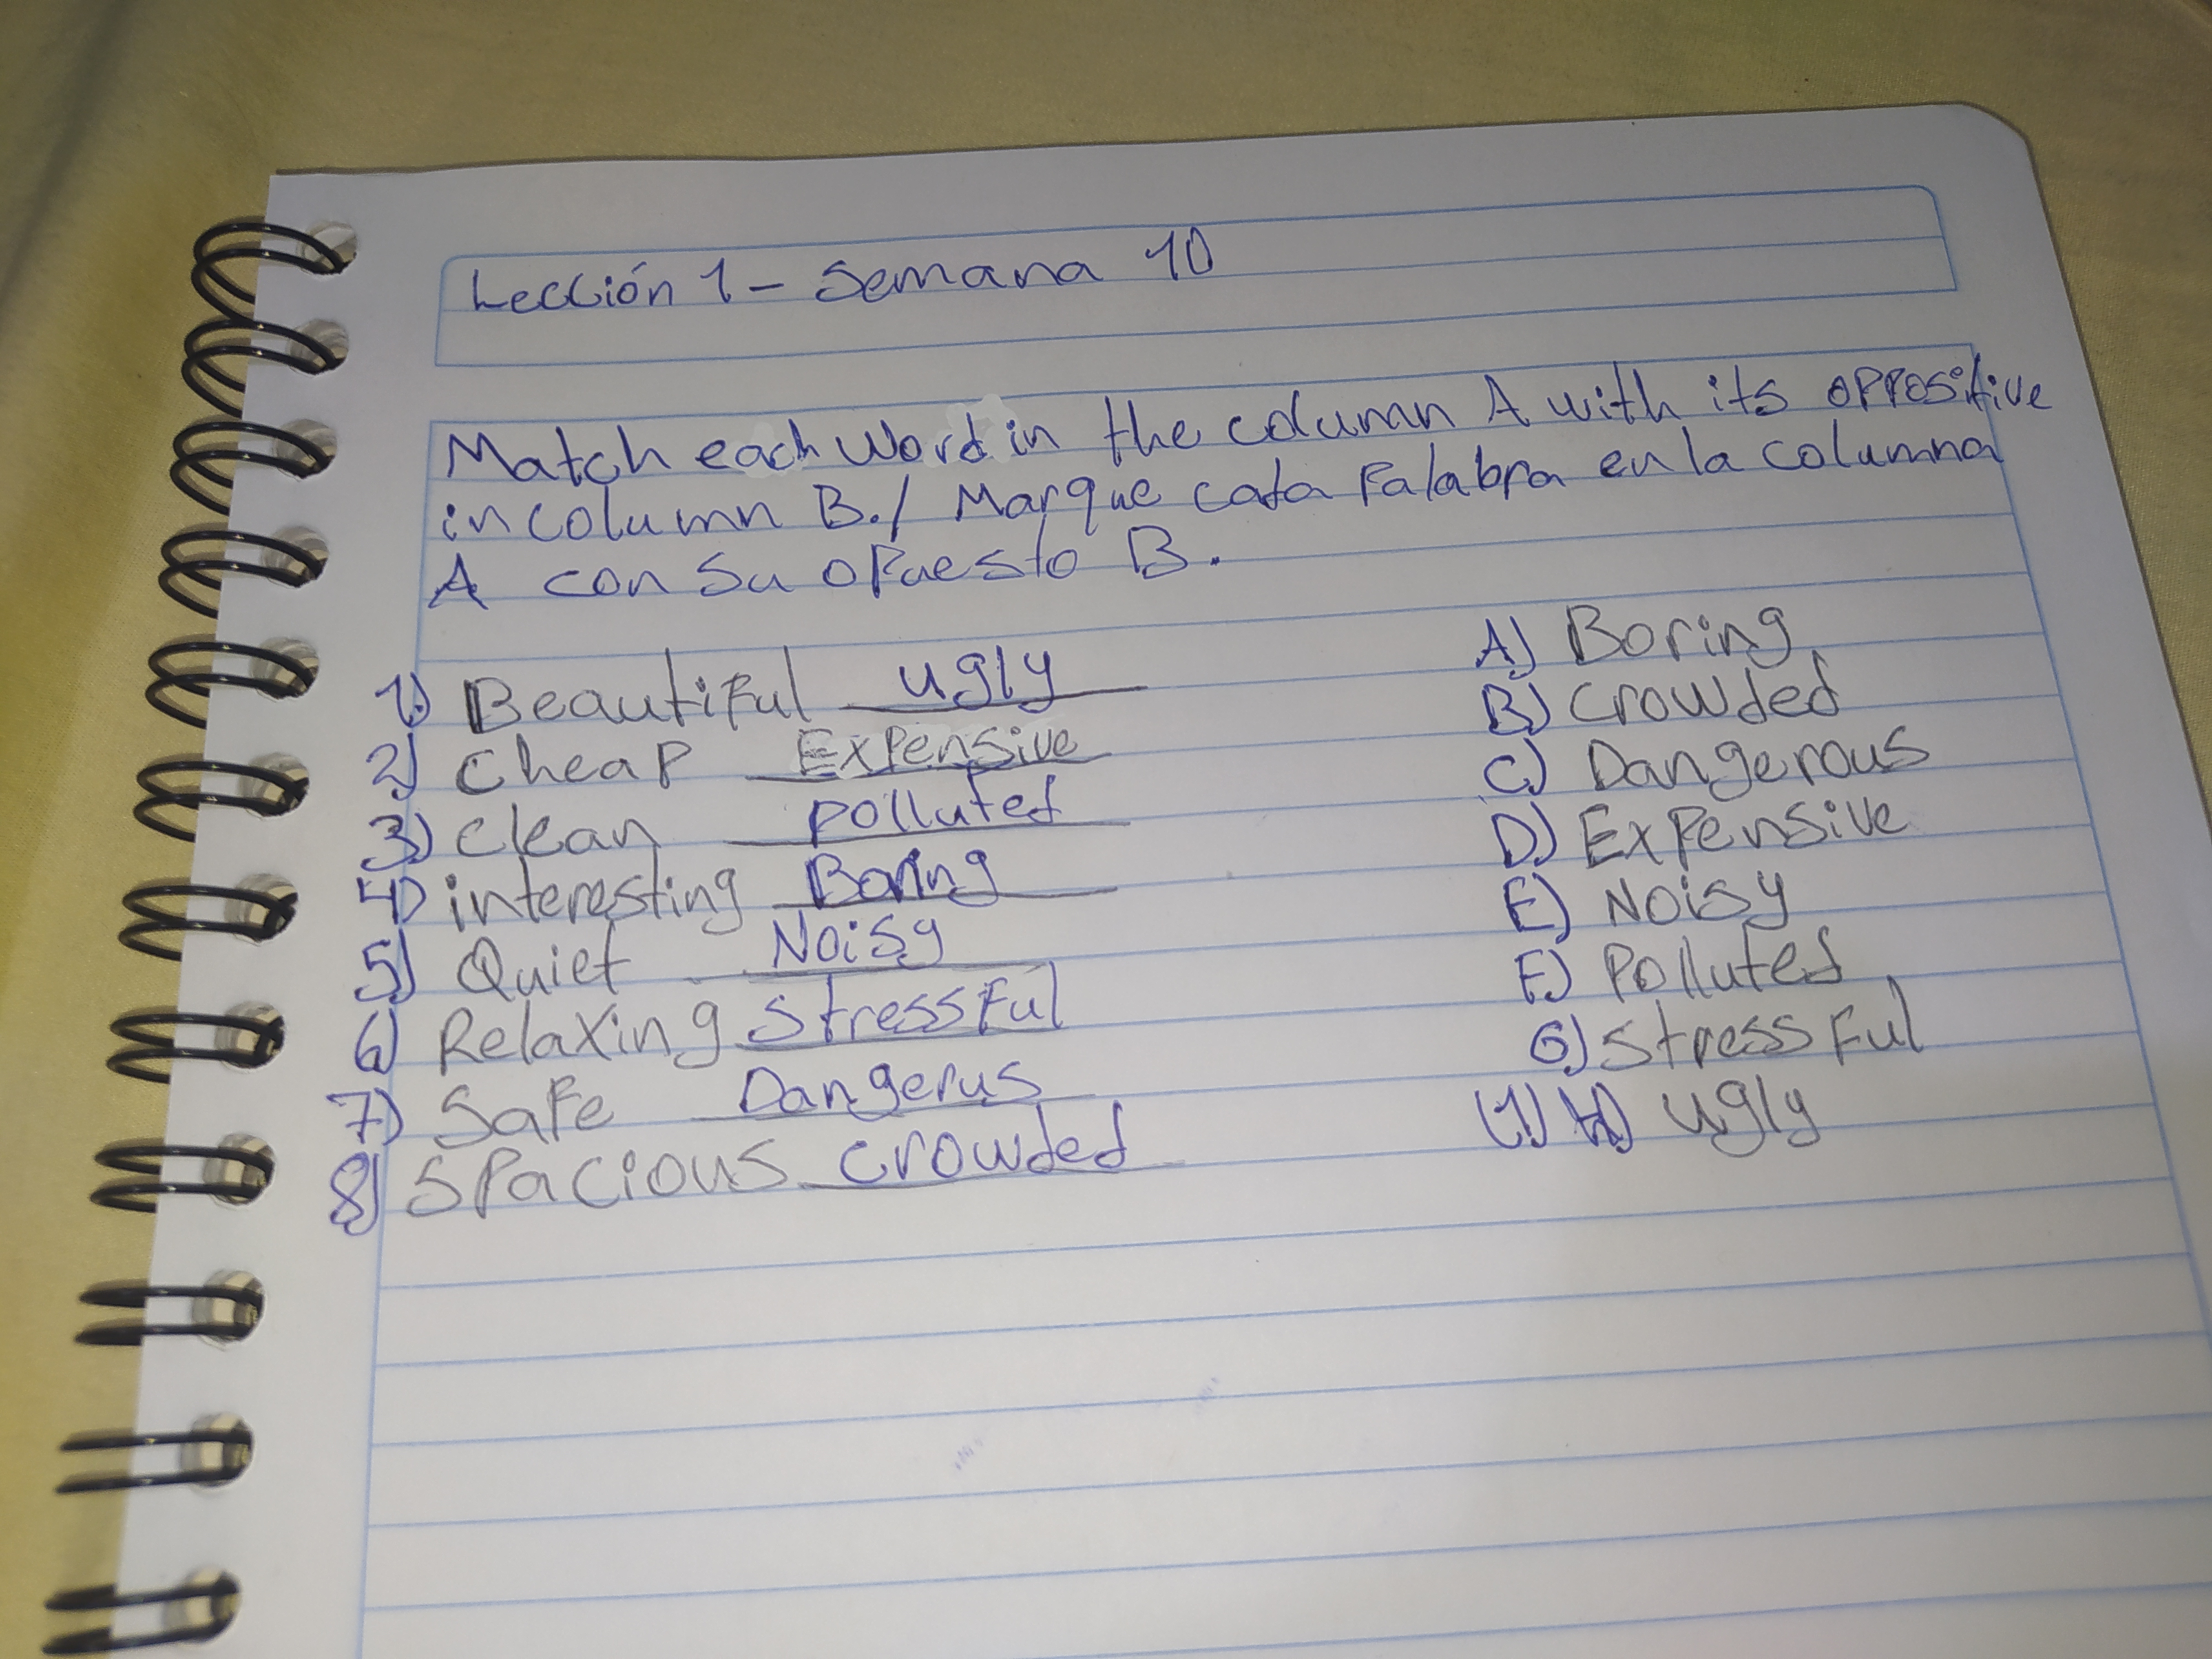 Lección 1 - Semana 10
Match each word in the column A with its oppositive
in column B. / Marque cada Palabra en la columna
A con su opuesto B.
1) Beautiful ugly
2) Cheap Expensive
3) Clean polluted
4) interesting Boring
5) Quiet Noisy
6) Relaxing Stressful
7) Safe Dangerus
8) Spacious crowded
A) Boring
B) Crowded
C) Dangerous
D) Expensive
E) Noisy
F) Polluted
G) Stressful
(1) H) ugly